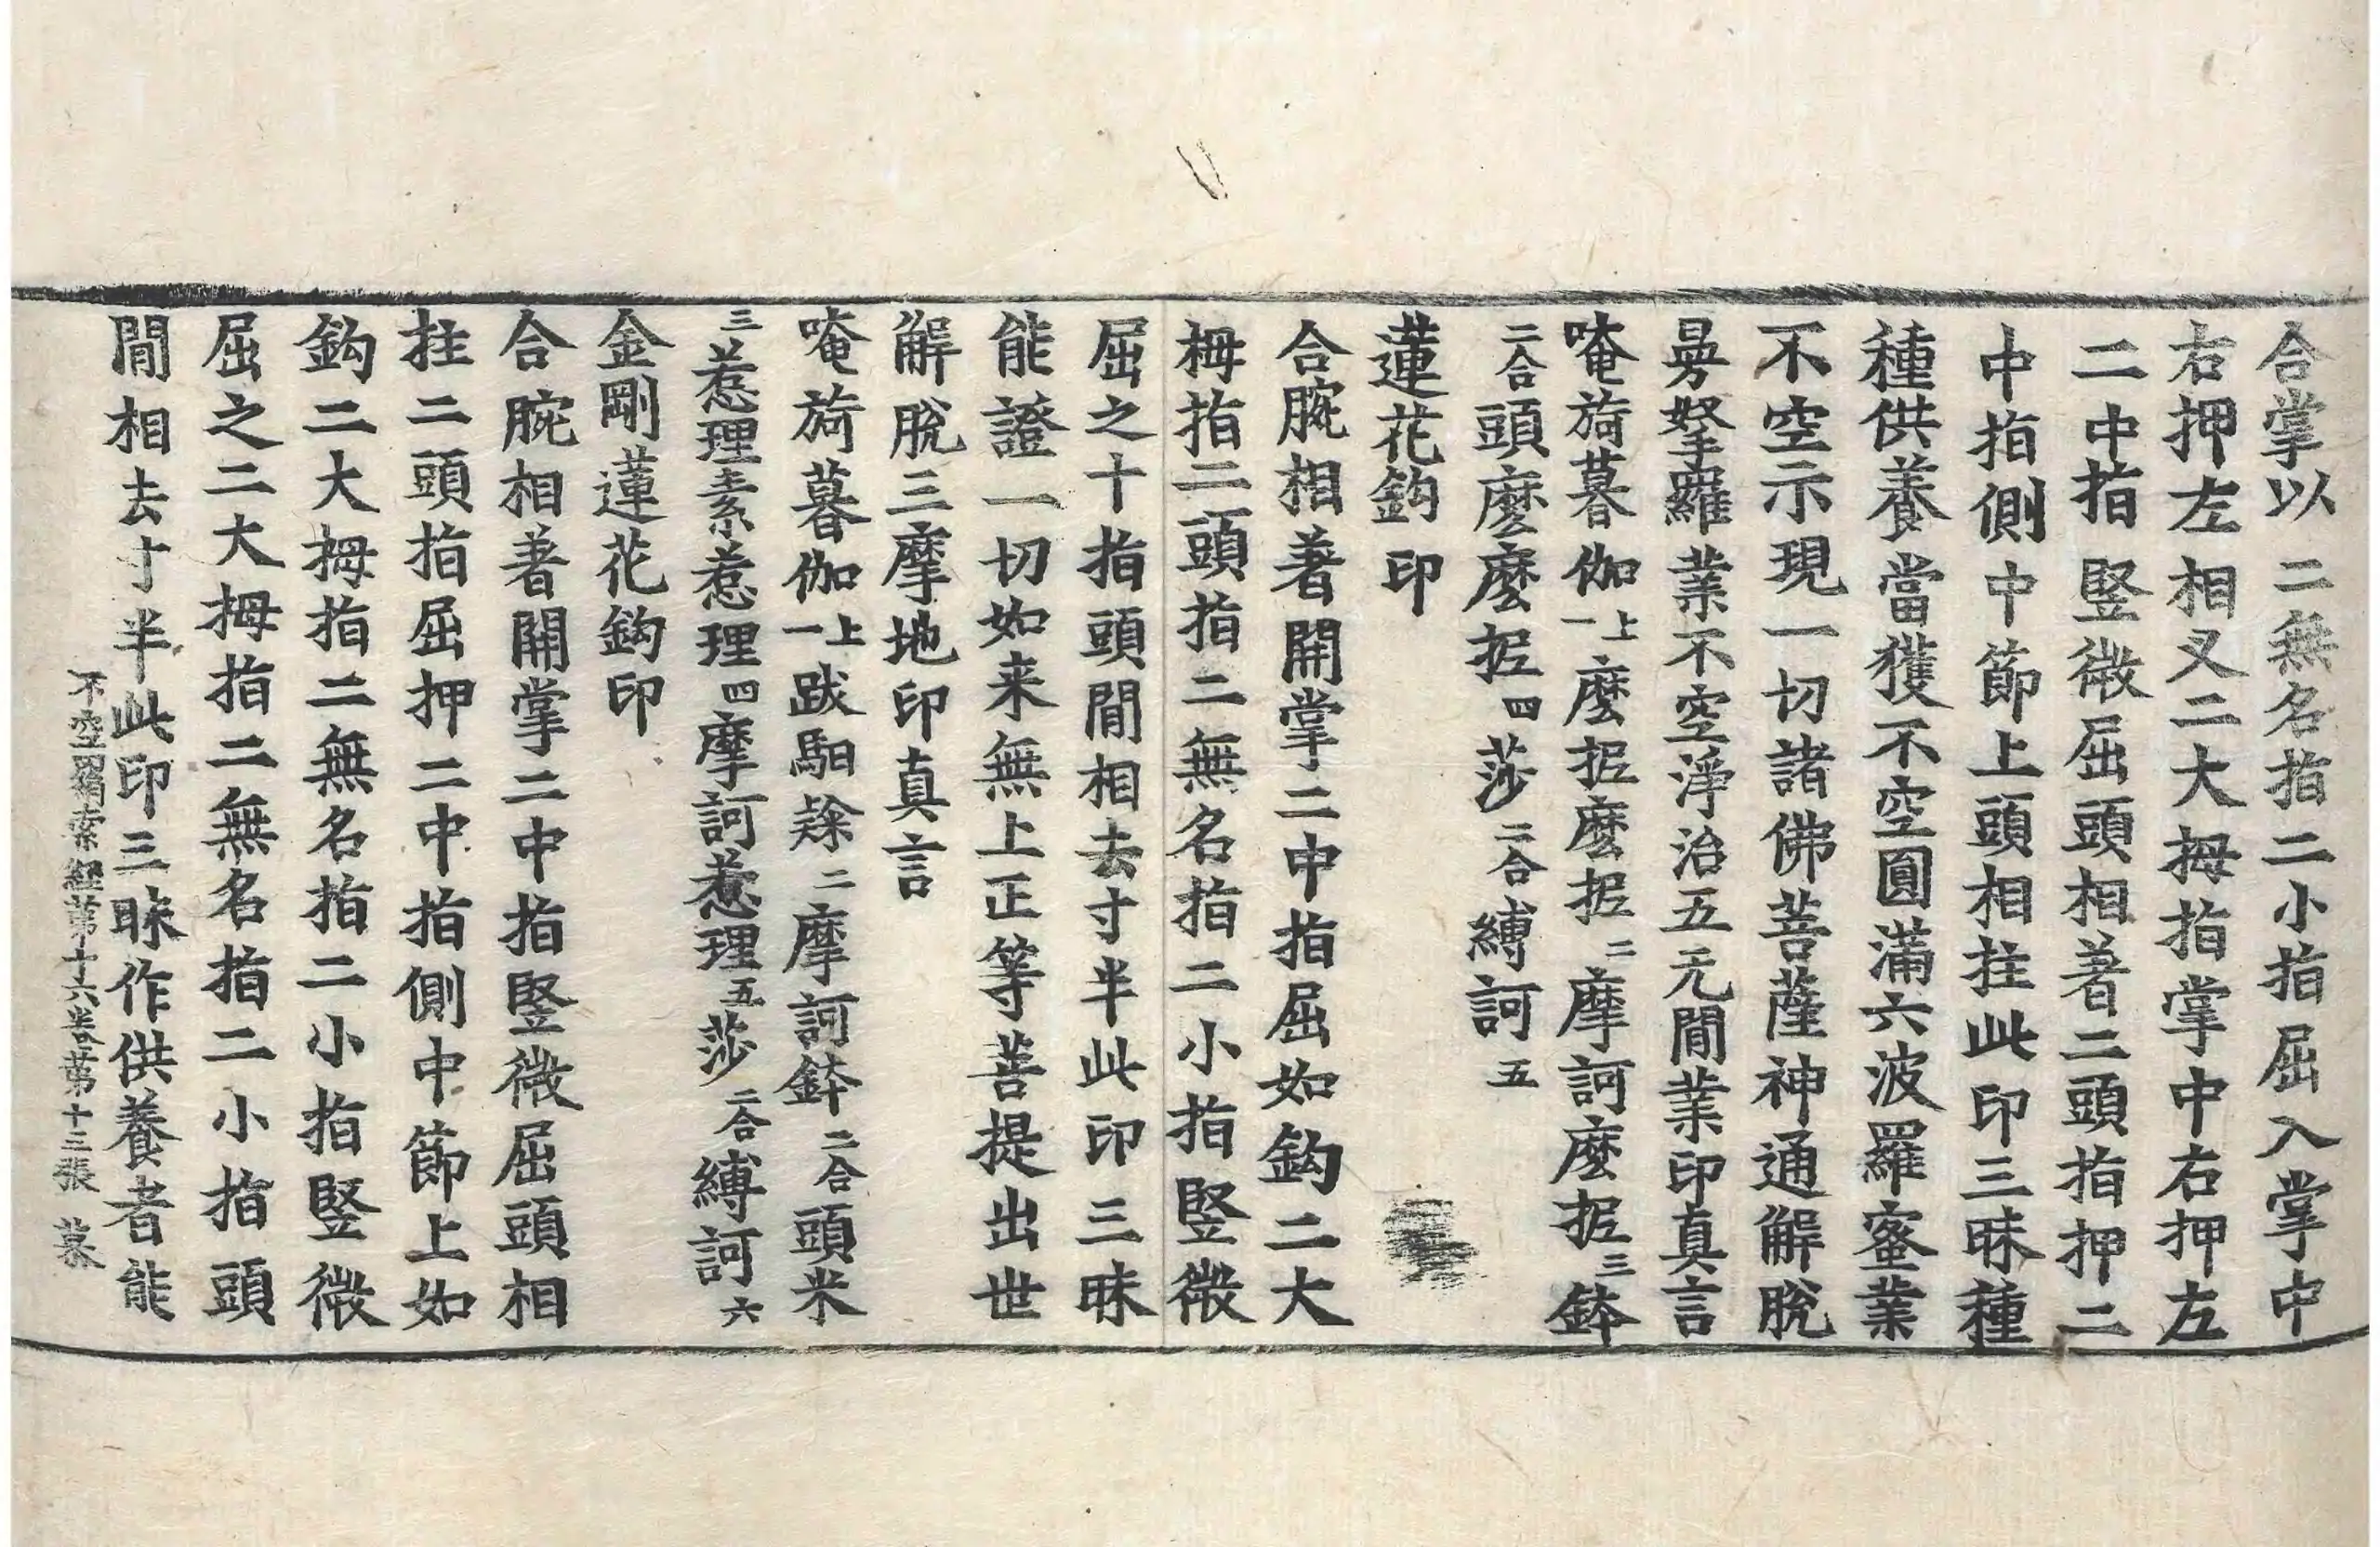 合掌以二無名指二小指屈入掌中
右押左相叉二大拇指掌中右押左
二中指竪微屈頭相著二頭指押二
中指側中節上頭相拄此印三昧種
種供養當獲不空圓滿六波羅蜜業
不空示現一切諸佛菩薩神通解脫
曼拏羅業不空淨治五无閒業印真言
唵旖暮伽上一麼抳麼抳二摩訶麼抳三鉢
二合頭麼麼抳四莎二合縛訶五
蓮花鈎印
合腕相著開掌二中指屈如鈎二大
拇指二頭指二無名指二小指竪微
屈之十指頭閒相去寸半此印三昧
能證一切如来無上正等菩提出世
解脫三摩地印真言
唵旖暮伽上一跋馹𨻻二摩訶鉢二合頭米
三惹理素惹理四摩訶惹理五莎二合縛訶六
金剛蓮花鈎印
合腕相著開掌二中指竪微屈頭相
拄二頭指屈押二中指側中節上如
鈎二大拇指二無名指二小指竪微
屈之二大拇指二無名指二小指頭
閒相去寸半此印三昧作供養者能
不空羂索經第十六卷第十三張 幕